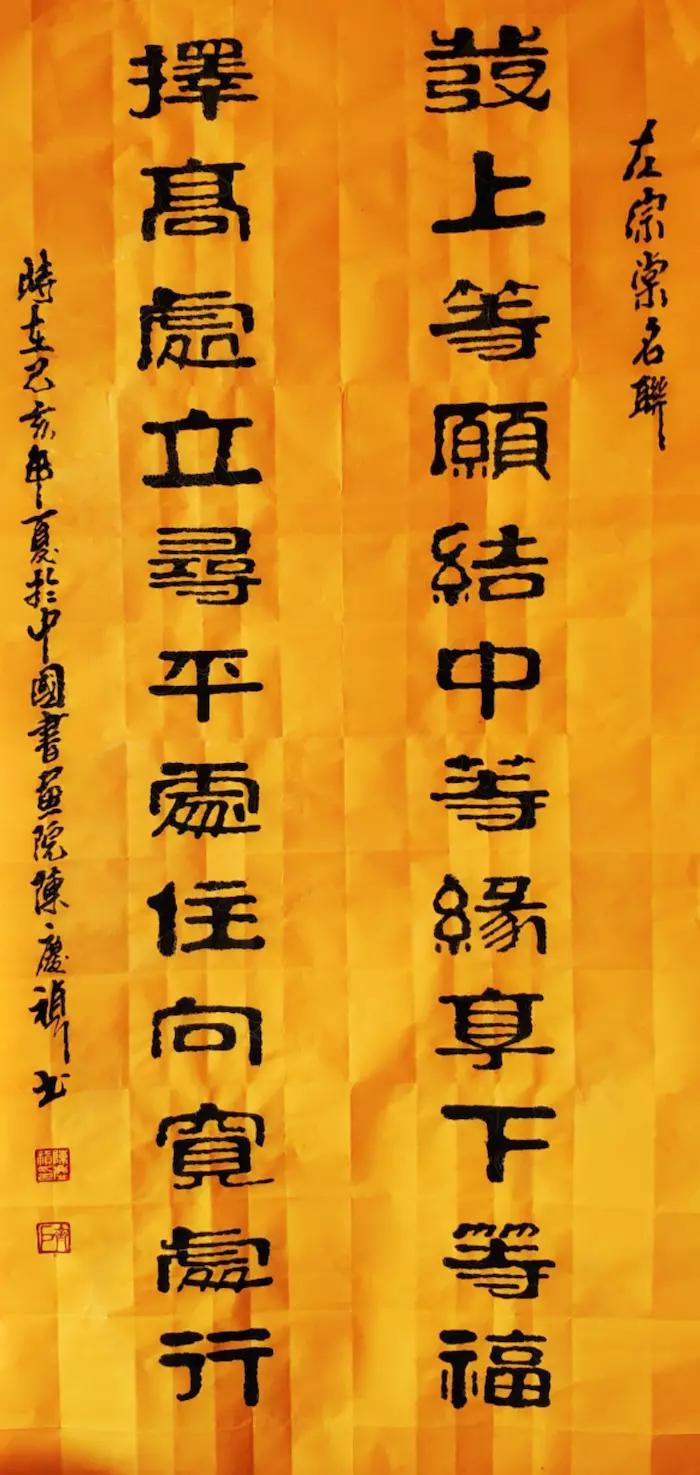 左宗棠名聯
發上等願結中等緣享下等福
擇高處立尋平處住向寬處行
時在己亥年夏於中國書畫院陳慶禎書